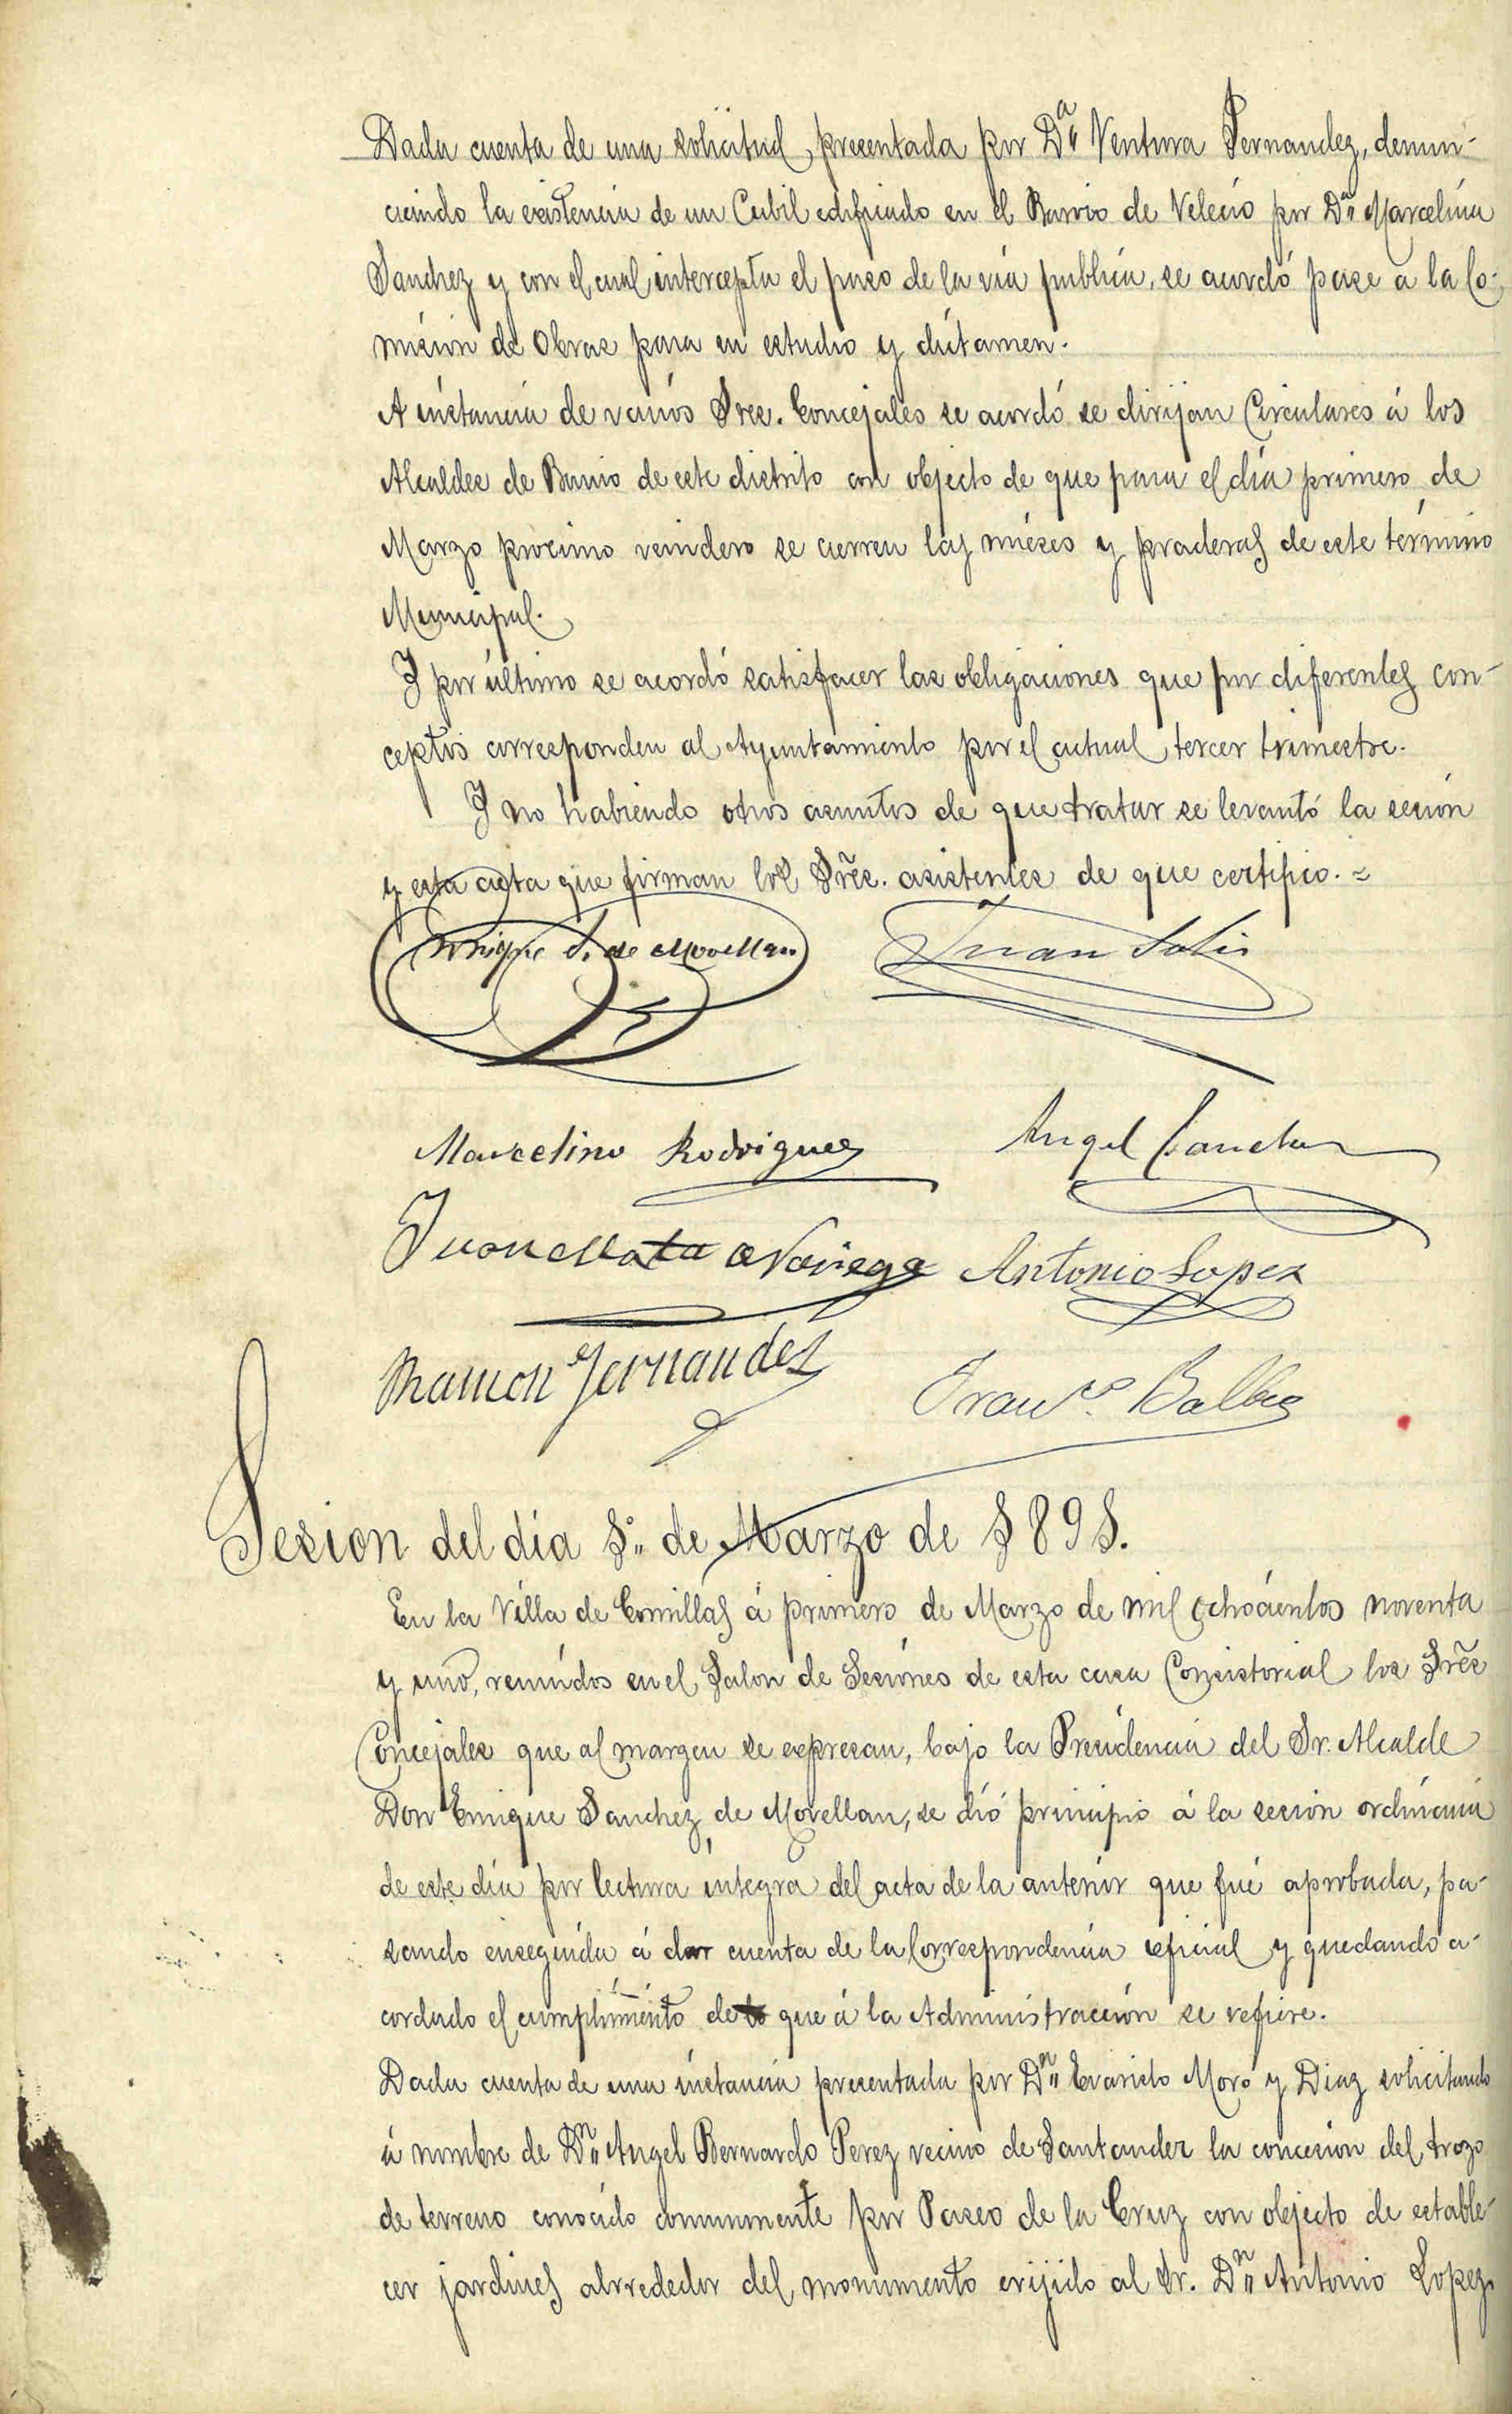 Dada cuenta de una solicitud presentada por Dª Ventura Fernandez, denun-
ciando la existencia de un Cubil edificado en el Barrio de Velecio por Dª Marcelina
Sanchez y con el cual intercepta el paso de la via publica, se acordó pase a la Co-
mision de Obras para su estudio y dictamen.
A instancia de varios Sres. Concejales se acordó se dirijan Circulares á los
Alcaldes de Barrio de este distrito con objecto de que para el dia primero de
Marzo procimo venidero se cierren las mieses y praderas de este término
Municipal.
Y por último se acordó satisfacer las obligaciones que por diferentes con-
ceptos corresponden al Ayuntamiento por el actual tercer trimestre.
Y no habiendo otros asuntos de que tratar se levantó la sesion
y esta acta que firman los Sres. asistentes de que certifico.=
Enrique S. de Movellan Juan Solis
Marcelino Rodriguez Angel Sanchez
Juan Mata Noriega Antonio Lopez
Ramon Fernandez Franco. Balbas
Sesion del dia 1º de Marzo de 1891.
En la Villa de Comillas á primero de Marzo de mil ochocientos noventa
y uno, reunidos en el Salon de Sesiones de esta casa Consistorial los Sres
Concejales que al margen se expresan, bajo la Presidencia del Sr. Alcalde
Don Enrique Sanchez de Movellan, se dió principio á la sesion ordinaria
de este dia por lectura integra del acta de la anterior que fué aprobada, pa-
sando enseguida á dar cuenta de la Correspondencia oficial y quedando a-
cordado el cumplimiento de lo que á la Administracción se refiere.
Dada cuenta de una instancia presentada por Dn Evaristo Moro y Diaz solicitando
á nombre de Dn Angel Bernardo Perez vecino de Santander la concesion del trozo
de terreno conocido comunmente por Paseo de la Cruz con objecto de estable-
cer jardines alrrededor del monumento erijido al Sr. Dn Antonio Lopez